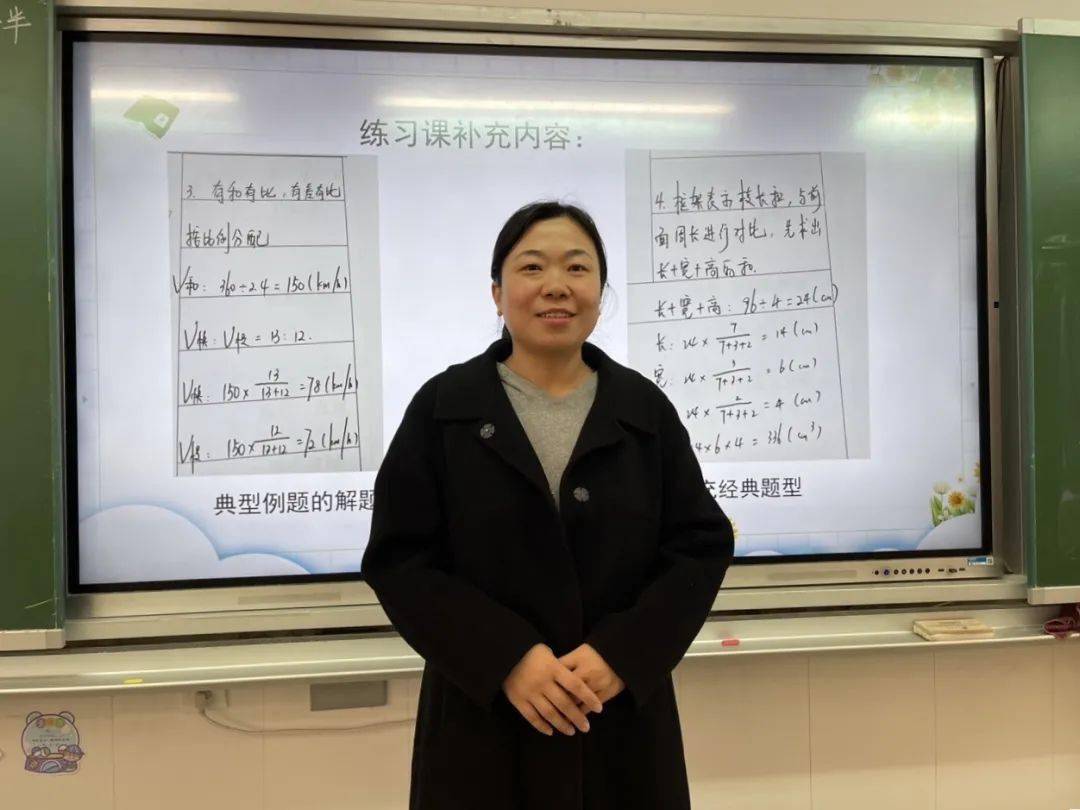 半
练习课补充内容：
3. 有和有比，有差有比
按比例分配
V和：360÷2.4=150(km/h)
V快：V慢=13：12.
V快：150×13/13+12=78(km/h)
V慢：150×12/13+12=72(km/h)
典型例题的解题
4. 框架表示棱长和，与前
面周长进行对比，先求出
长+宽+高的和.
长+宽+高：96÷4=24(cm)
长：24×7/7+3+2=14(cm)
宽：24×3/7+3+2=6(cm)
24×2/7+3+2=4(cm)
4×6×4=336(cm³)
充经典题型